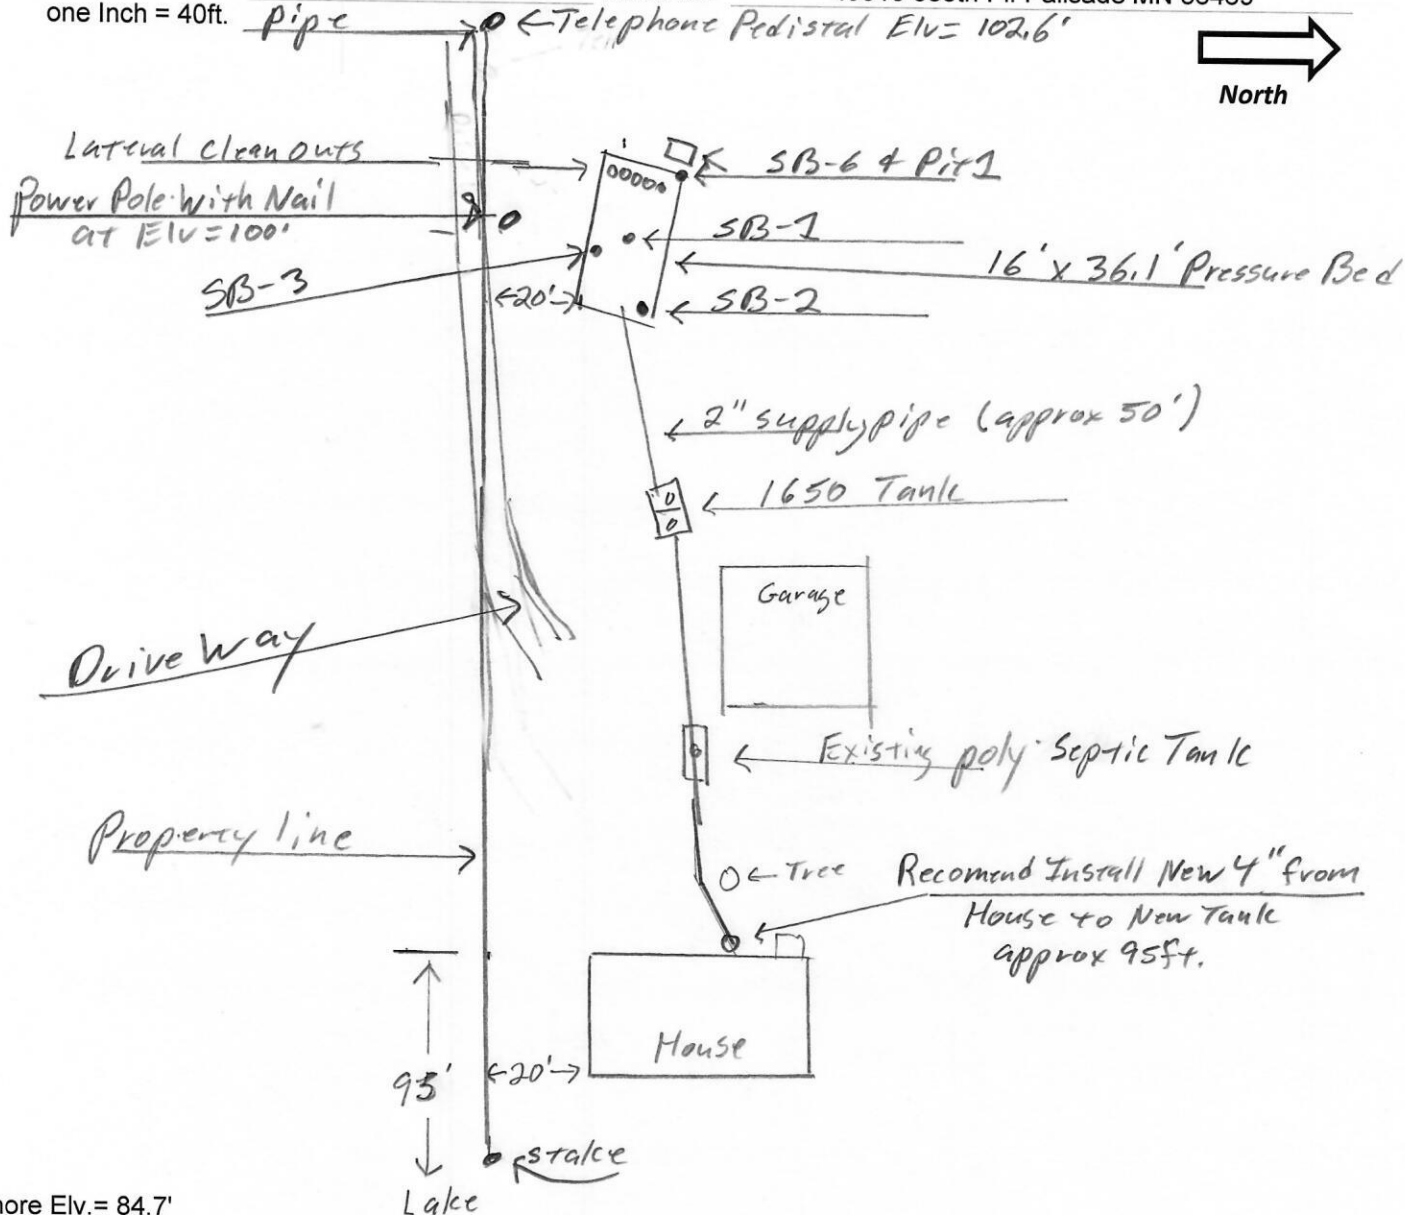 one Inch = 40ft.
pipe
←Telephone Pedistal Elv= 102.6'
North
Lateral Clean Outs
SB-6 & Pit 1
Power Pole With Nail
at Elv=100'
SB-1
16' x 36.1' Pressure Bed
SB-3
←20'→
SB-2
2" supply pipe (approx 50')
1650 Tank
Garage
Drive Way
Existing poly Septic Tank
Property line
←Tree
Recomend Install New 4" from
House to New Tank
approx 95ft.
House
95'
←20'→
stake
Lake
Elv.= 84.7'